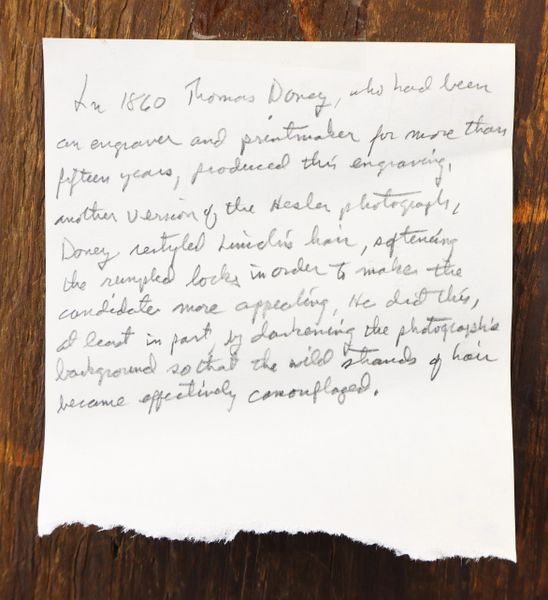 In 1860 Thomas Doney, who had been
an engraver and printmaker for more than
fifteen years, produced this engraving,
another version of the Hesler photograph,
Doney restyled Lincoln's hair, softening
the rumpled locks in order to make the
candidate more appealing, He did this,
at least in part, by darkening the photographic
background so that the wild strands of hair
became effectively camouflaged.